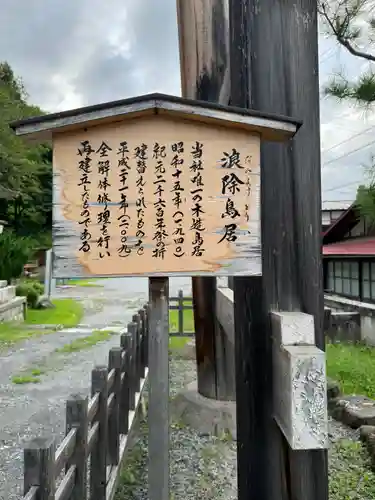 浪除鳥居
なみよけとりい
当社唯一の木造鳥居
昭和十五年（一九四〇）
紀元二千六百年の折
建替えされたもの
平成二十一年（二〇〇九）
全解体修理を行い
再建立したものである